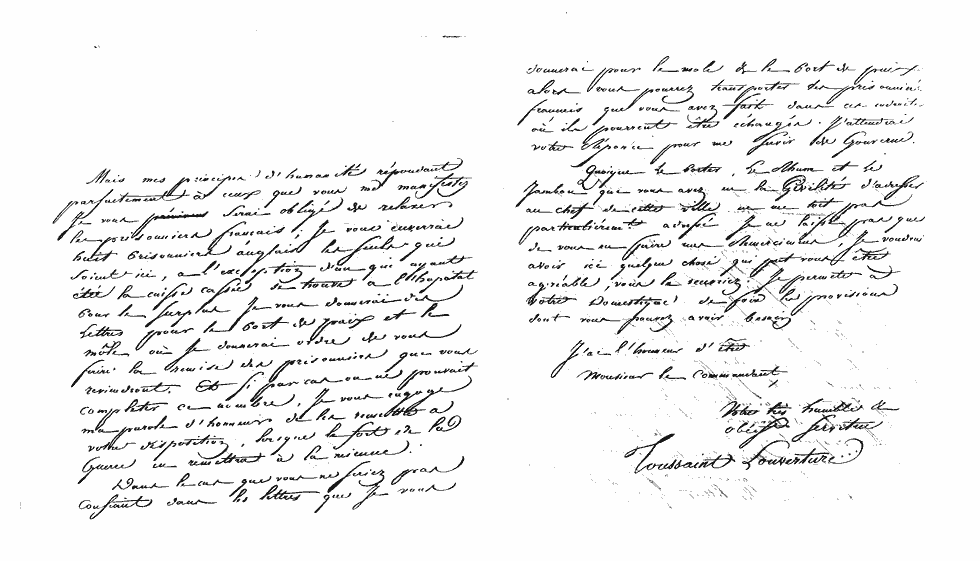 Mais mes principes d'humanité répondant
parfaitement à ceux que vous me manifestez
Je vous serai obligé de relaxer
les prisonniers français ; Je vous enverrai
huit prisonniers anglais les seuls qui
soient ici, a l'exception d'un qui ayant
étée la cuisse cassée se trouve a l'hopotal
pour le surplus Je vous donnerai des
Lettres pour le Port de paix et le
môle où Je donnerai ordre de vous
faire la remise des prisonniers que vous
reviendront. Et si par cas on ne pouvait
completter ce nombre, Je vous engage
ma parole d'honneur de les remettre a
votre disposition, lorsque le sort de la
Guerre en remettroit à la mienne.
Dans le cas que vous ne seriez pas
Confiant dans les lettres que Je vous
donnerai pour le mole et le Port de paix,
alors vous pourrez transporter les prisonnié
francais que vous avez fait dans ces endroits
où ils pourront être échangés. J'attendrai
votre Réponse pour me servir de Gouverne.
Quoique le porter, le Rhum et le
Jambon que vous avez eu la Civilité d'adresser
au chef de cette ville ne me soit pas
particulierement adressé Je ne laisse pas que
de vous en faire mes Remerciemens, Je voudrai
avoir ici quelque chose qui put vous être
agréable, vous le recevriez. Je permets à
Votre Domestique de faire les provisions
dont vous pouvez avoir besoin
J'ai l'honneur d'être
Monsieur le Commandant
Votre très humble &
obéisst Serviteur
Toussaint Louverture